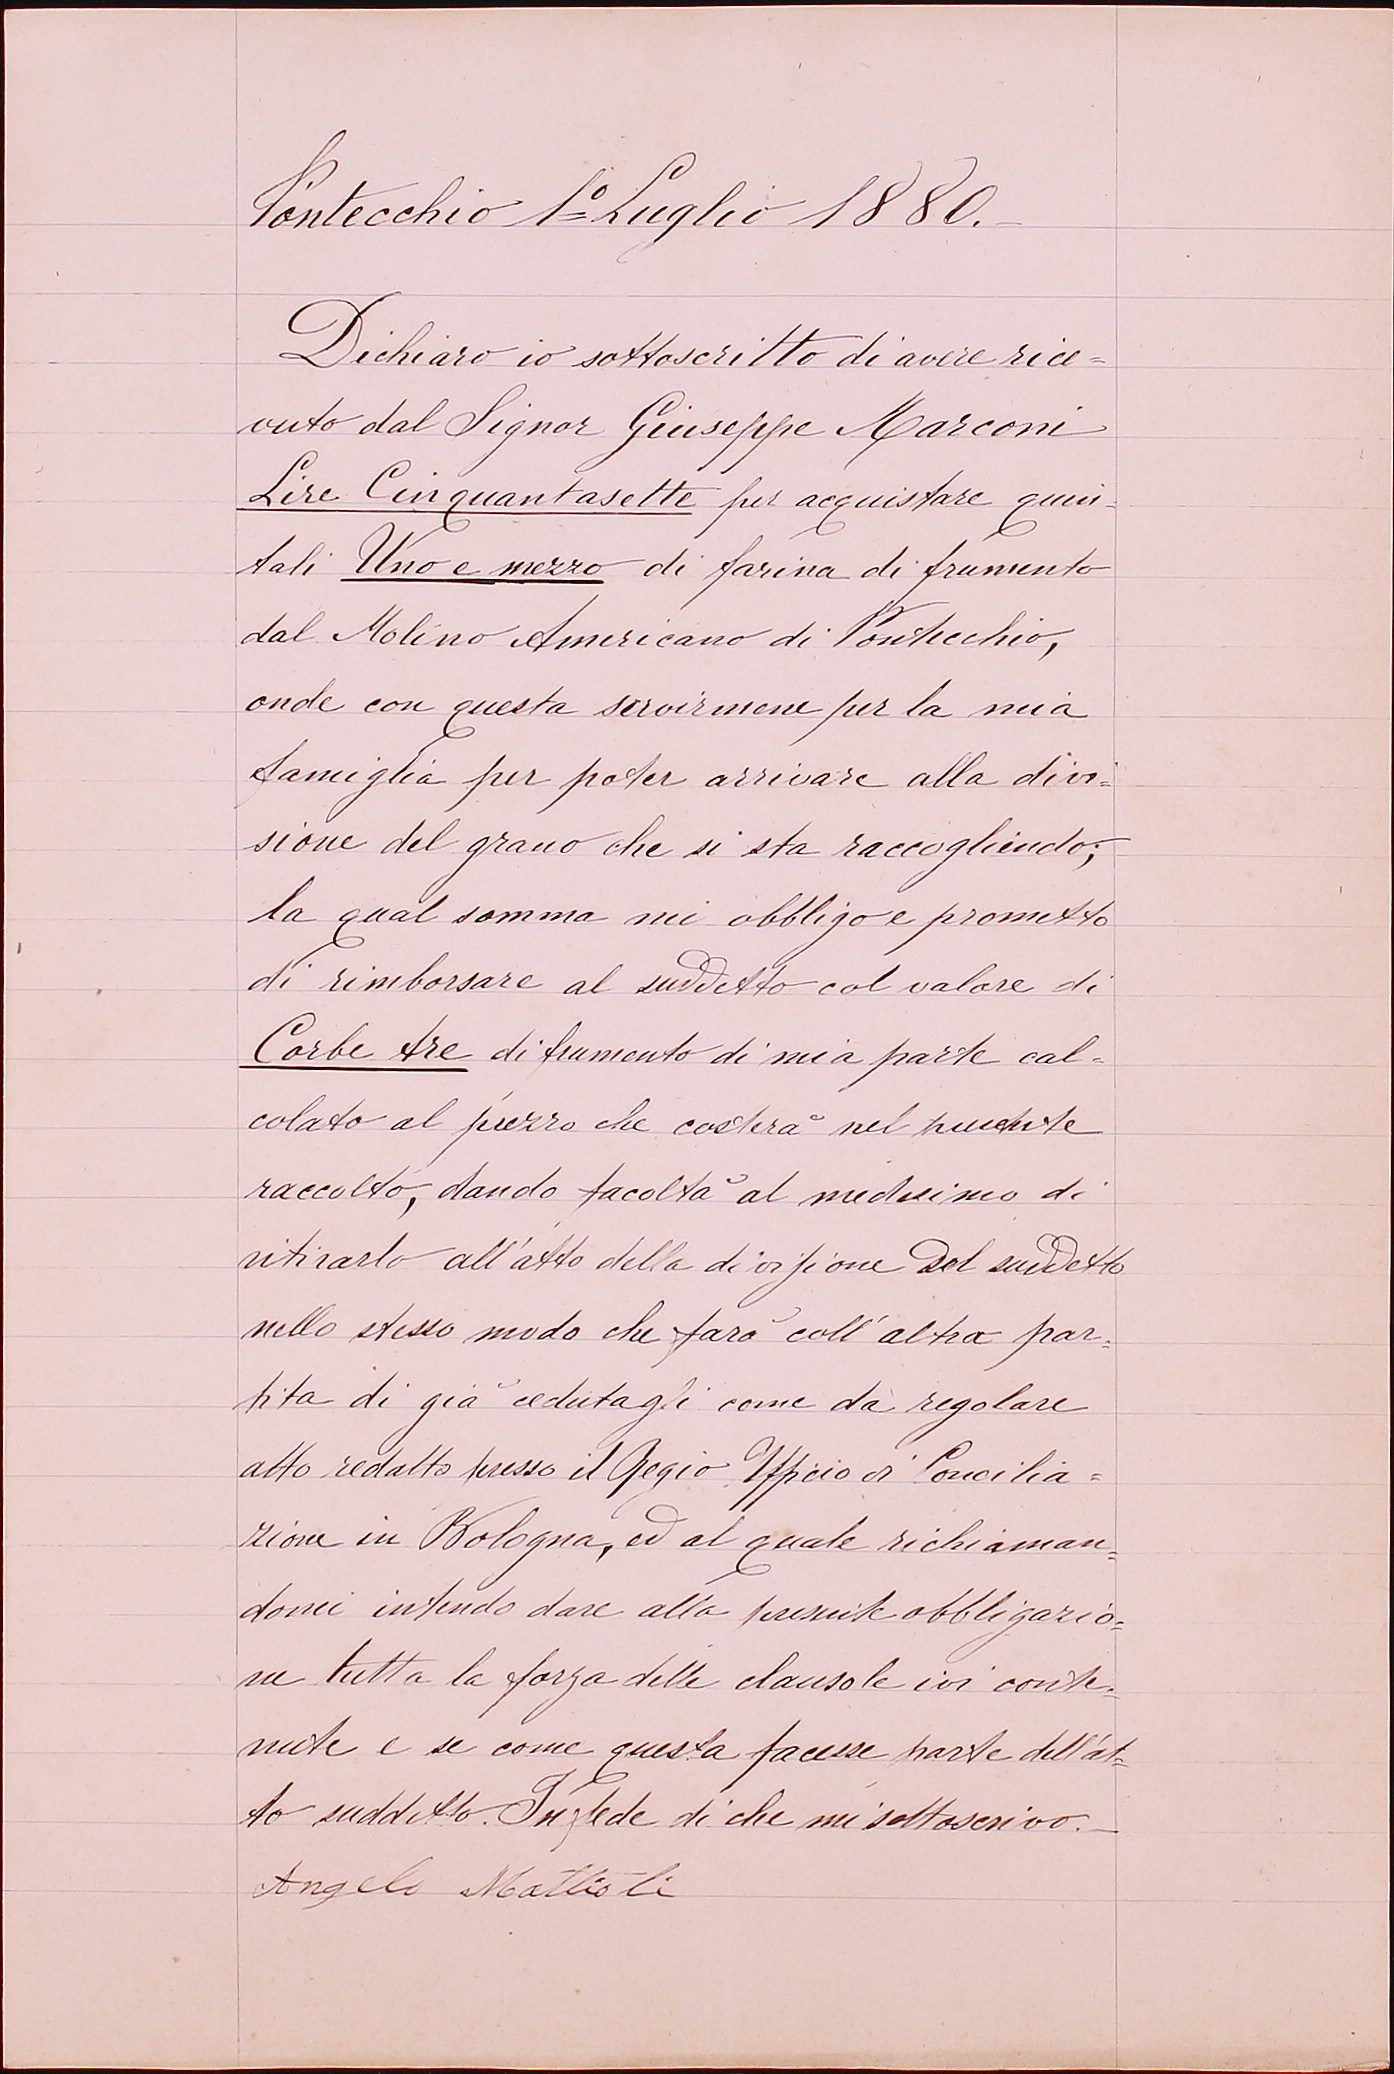 Pontecchio 1º Luglio 1880.-
Dichiaro io sottoscritto di avere rice=
vuto dal Signor Giuseppe Marconi
Lire Cinquantasette per acquistare quin-
tali Uno e mezzo di farina di frumento
dal Molino Americano di Pontecchio,
onde con questa servirmene per la mia
famiglia per poter arrivare alla divi=
sione del grano che si sta raccogliendo;
la qual somma mi obbligo e prometto
di rimborsare al suddetto col valore di
Corbe tre di frumento di mia parte cal=
colato al prezzo che costerà nel presente
raccolto, dando facoltà al medesimo di
ritirarlo all'atto della divisione del suddetto
nello stesso modo che farà coll'altra par=
tita di già cedutagli come da regolare
atto redatto presso il Regio Ufficio di Concilia=
zione in Bologna, ed al quale richiaman=
domi intendo dare alla presente obbligazio=
ne tutta la forza delle clausole ivi conte=
nute e se come questa facesse parte dell'at=
to suddetto. In fede di che mi sottoscrivo.-
Angelo Mattioli